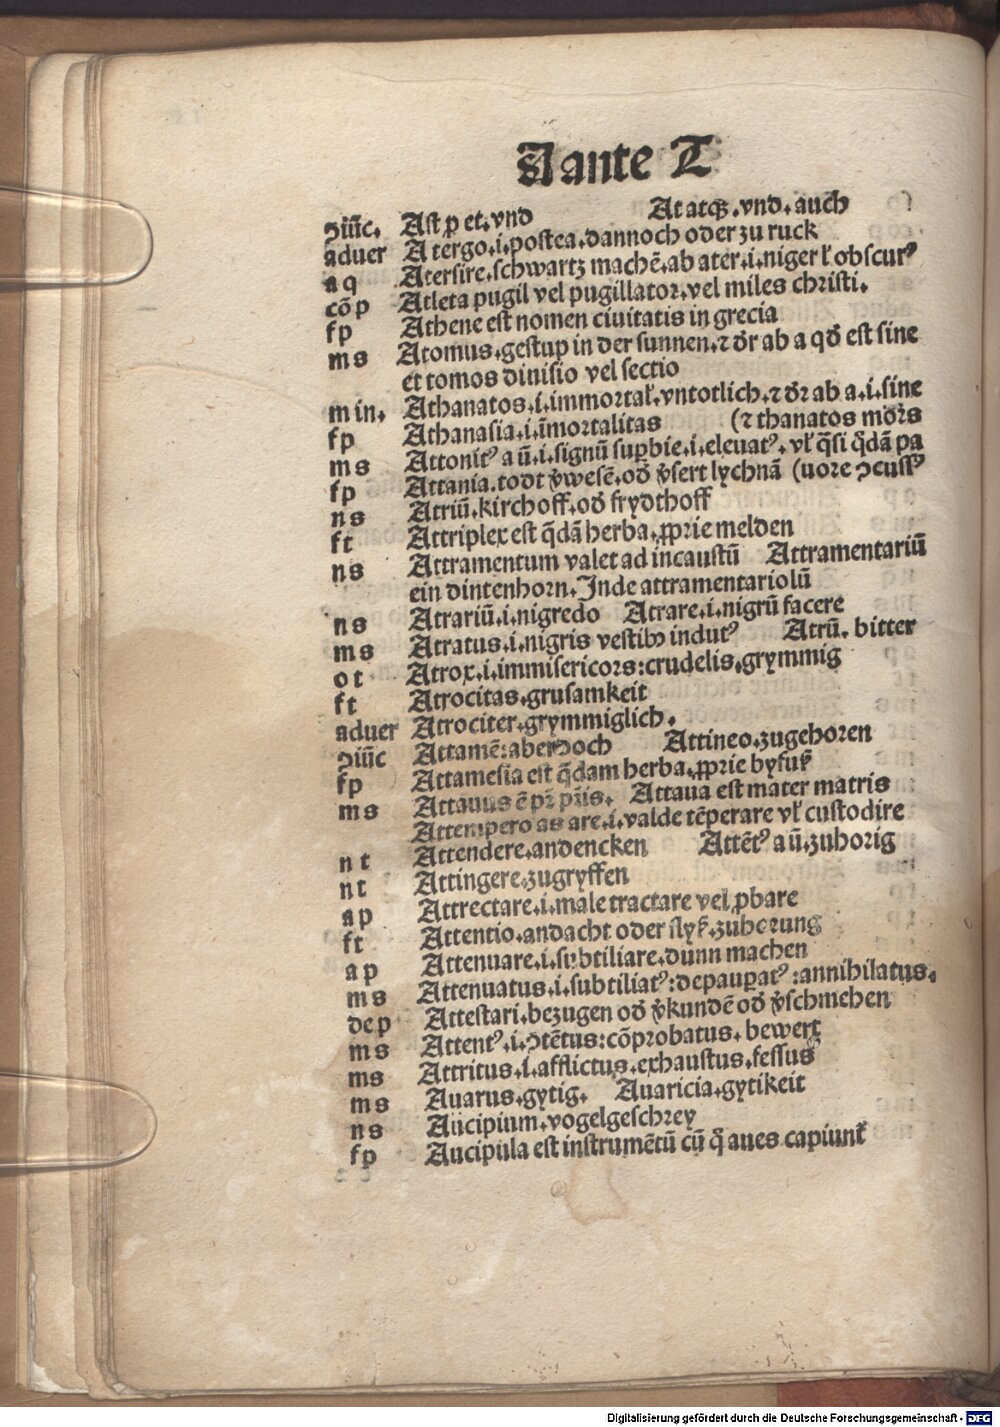 A ante T
ↄiūc. Ast ꝑ et.vnd At atqꝫ.vnd.auch
aduer A tergo.i.postea.dannoch oder zu ruck
a q Atersire.schwartz machē.ab ater.i.niger ł obscurꝰ
cō p Atleta pugil vel pugillator.vel miles christi.
f p Athene est nomen ciuitatis in grecia
m s Atomus.gestup in der sunnen.⁊ dr̄ ab a qd̄ est sine
et tomos diuisio vel sectio
m in. Athanatos.i.immortał.vntotlich.⁊ dr̄ ab a.i.sine
f p Athanasia.i.īmortalitas (⁊ thanatos mōrs
m s Attonitꝰ a ū.i.signū suꝑbie.i.eleuatꝰ.vł q̄si q̄dā pa
f p Attania.todt v̄wesē.od̄ v̄sert lychnā (uore ↄcussꝰ
n s Atriū.kirchoff.od̄ frydthoff
f t Attriplex est q̄dā herba.ꝓprie melden
n s Attramentum valet ad incaustū Attramentariū
ein dintenhorn.Inde attramentariolū
n s Atrariū.i.nigredo Atrare.i.nigrū facere
m s Atratus.i.nigris vestibꝫ indutꝰ Atrū.bitter
o t Atrox.i.immisericors:crudelis.grymmig
f t Atrocitas.grusamkeit
aduer Atrociter.grymmiglich.
ↄiūc Attamē:aberdoch Attineo.zugehoren
f p Attamesia est q̄dam herba.ꝓprie byfuß
m s Attauus ē pr̄ pr̄is. Attaua est mater matris
Attempero as are.i.valde tēperare vł custodire
n t Attendere.andencken Attētꝰ a ū.zuhorig
n t Attingere.zugryffen
a p Attrectare.i.male tractare vel ꝓbare
f t Attentio.andacht oder flyß.zuhorung
a p Attenuare.i.subtiliare.dunn machen
m s Attenuatus.i.subtiliatꝰ:depauꝑatꝰ:annihilatus.
de p Attestari.bezugen od̄ v̄kundē od̄ v̄schniehen
m s Attentꝰ.i.ↄtētus:cōprobatus.bewert
m s Attritus.i.afflictus.exhaustus.fessus
m s Auarus.gytig. Auaricia.gytikeit
n s Aucipium.vogelgeschrey
f p Aucipula est instrumētū cū q̄ aues capiunt̄
Digitalisierung gefördert durch die Deutsche Forschungsgemeinschaft - DFG